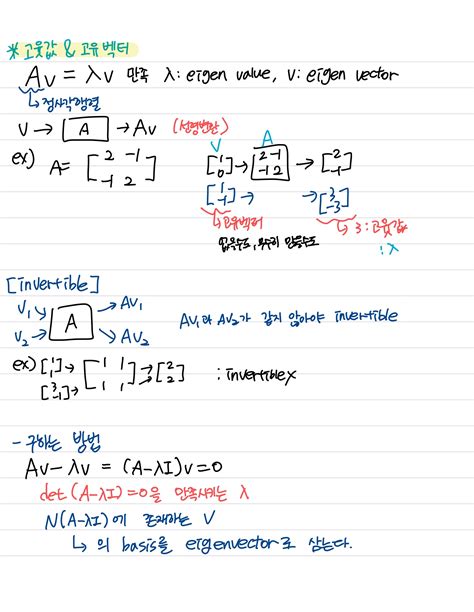 * 고윳값 & 고유벡터
Av = λv 만족 λ: eigen value, v: eigen vector
↳ 정사각행렬
v → [A] → Av (선형변환)
v A
ex) A = [2 -1; -1 2] [1; 0] → [2 -1; -1 2] → [2; -1]
[1; -1] → → [3; -3]
↳ 고유벡터 ↳ 3: 고윳값
없을수도, 무수히 많을수도 : λ
[invertible]
v₁ → → Av₁
A Av₁과 Av₂가 같지 않아야 invertible
v₂ → → Av₂
ex) [1; 1] → [1 1; 1 1] → [2; 2] : invertible x
[3; -1] →
- 구하는 방법
Av - λv = (A-λI)v = 0
det (A-λI) = 0을 만족시키는 λ
N(A-λI)에 존재하는 v
↳ 의 basis를 eigenvector로 삼는다.